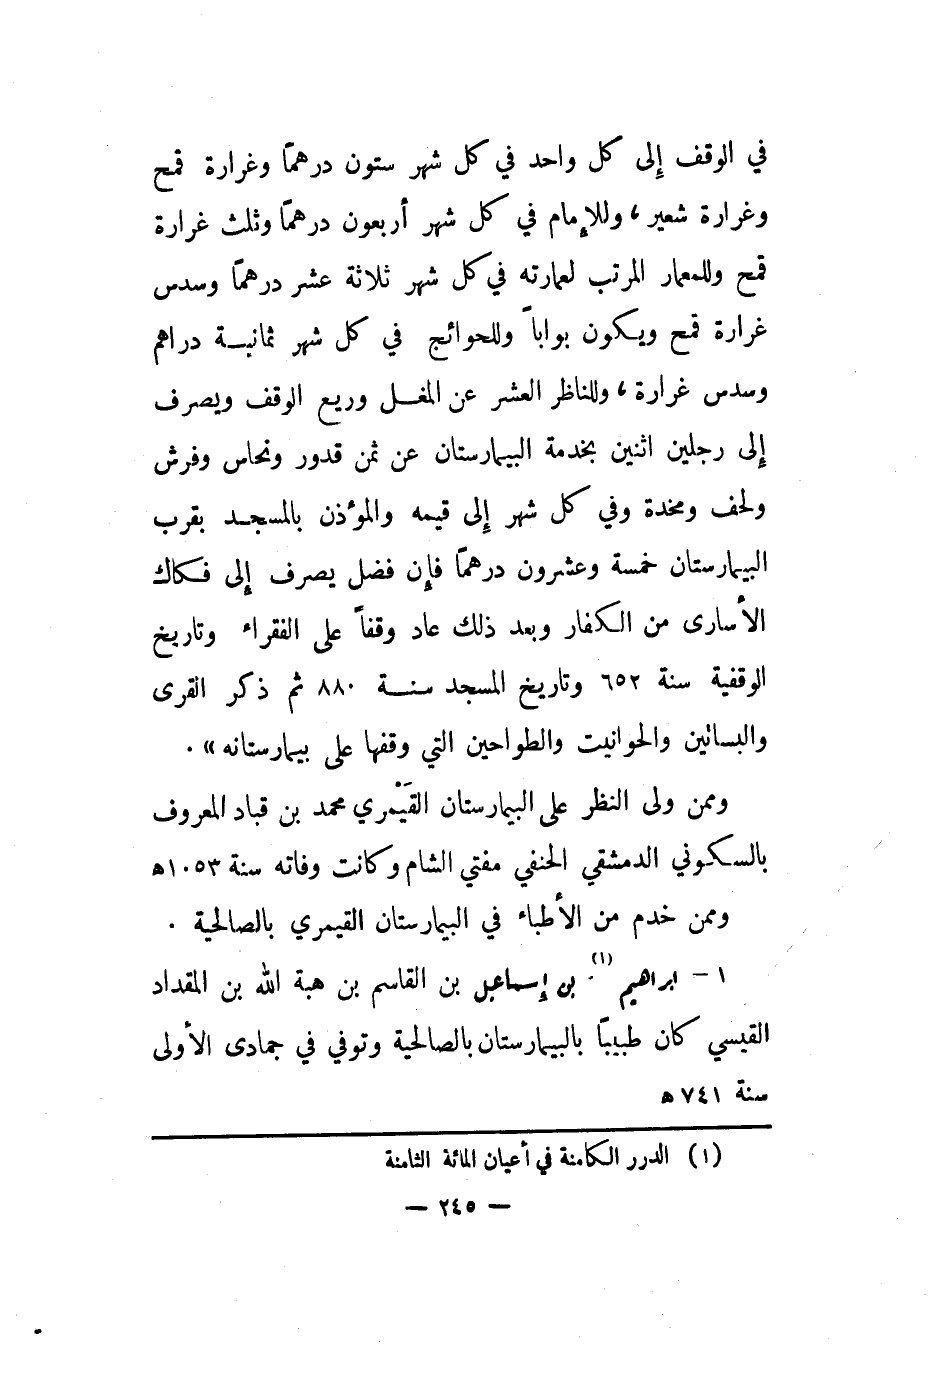 في الوقف إلى كل واحد في كل شهر ستون درهمًا وغرارة قمح
وغرارة شعير ، وللإمام في كل شهر أربعون درهمًا وثلث غرارة
قمح وللمعمار المرتب لعمارته في كل شهر ثلاثة عشر درهمًا وسدس
غرارة قمح ويكون بواباً وللحوائج في كل شهر ثمانيـة دراهم
وسدس غرارة ، وللناظر العشر عن المغـل وريع الوقف ويصرف
إلى رجلين اثنين بخدمة البيمارستان عن ثمن قدور ونحاس وفرش
ولحف ومخدة وفي كل شهر إلى قيمه والمؤذن بالمسجـد بقرب
البيمارستان خمسة وعشرون درهمًا فإن فضل يصرف إلى فكاك
الأسارى من الكفار وبعد ذلك عاد وقفاً على الفقراء وتاريخ
الوقفية سنة ٦٥٢ وتاريخ المسجد سنـة ٨٨٠ ثم ذكر القرى
والبساتين والحوانيت والطواحين التي وقفها على بيمارستانه » .
وممن ولى النظر على البيمارستان القَيْمري محمد بن قباد المعروف
بالسكوني الدمشقي الحنفي مفتي الشام وكانت وفاته سنة ١٠٥٣ه
وممن خدم من الأطباء في البيمارستان القيمري بالصالحية .
١ – ابراهيم (١) بن إسماعيل بن القاسم بن هبة الله بن المقداد
القيسي كان طبيبًا بالبيمارستان بالصالحية وتوفي في جمادى الأولى
سنة ٧٤١ ه
(١) الدرر الكامنة في أعيان المائة الثامنة
— ٢٤٥ —